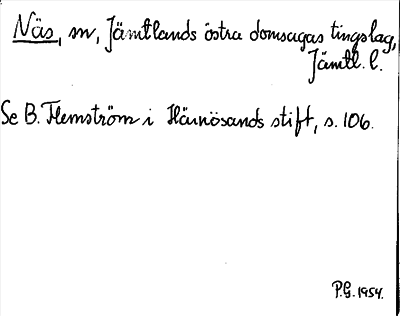 Näs, sn, Jämtlands östra domsagas tingslag,
Jämtl. l.
Se B. Flemström i Härnösands stift, s. 106.
P.G. 1954.